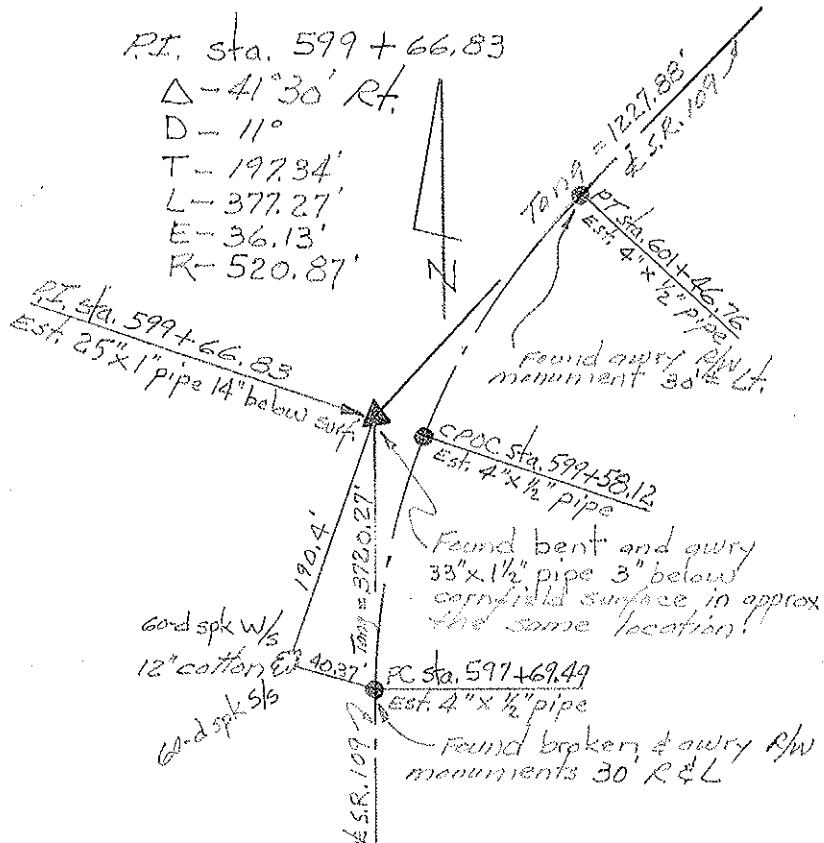 P.I. sta. 599 + 66.83
Δ - 41°30' Rt.
D - 11°
T - 197.34'
L - 377.27'
E - 36.13'
R - 520.87'
N
Tang = 1227.88'
℄ S.R. 109
PT sta. 601+46.76
Est. 4" x 1/2" pipe
Found awry R/W
monument 30'± Lt.
P.I. sta. 599+66.83
Est. 25" x 1" pipe 14" below surf.
CPOC sta. 599+58.12
Est. 4" x 1/2" pipe
Found bent and awry
33" x 1 1/2" pipe 3" below
cornfield surface in approx
the same location.
190.4'
Tang = 3720.27'
60-d spk W/s
12" cotton
60-d spk S/s
40.37'
PC sta. 597+69.49
Est. 4" x 1/2" pipe
Found broken & awry R/W
monuments 30' R & L
℄ S.R. 109